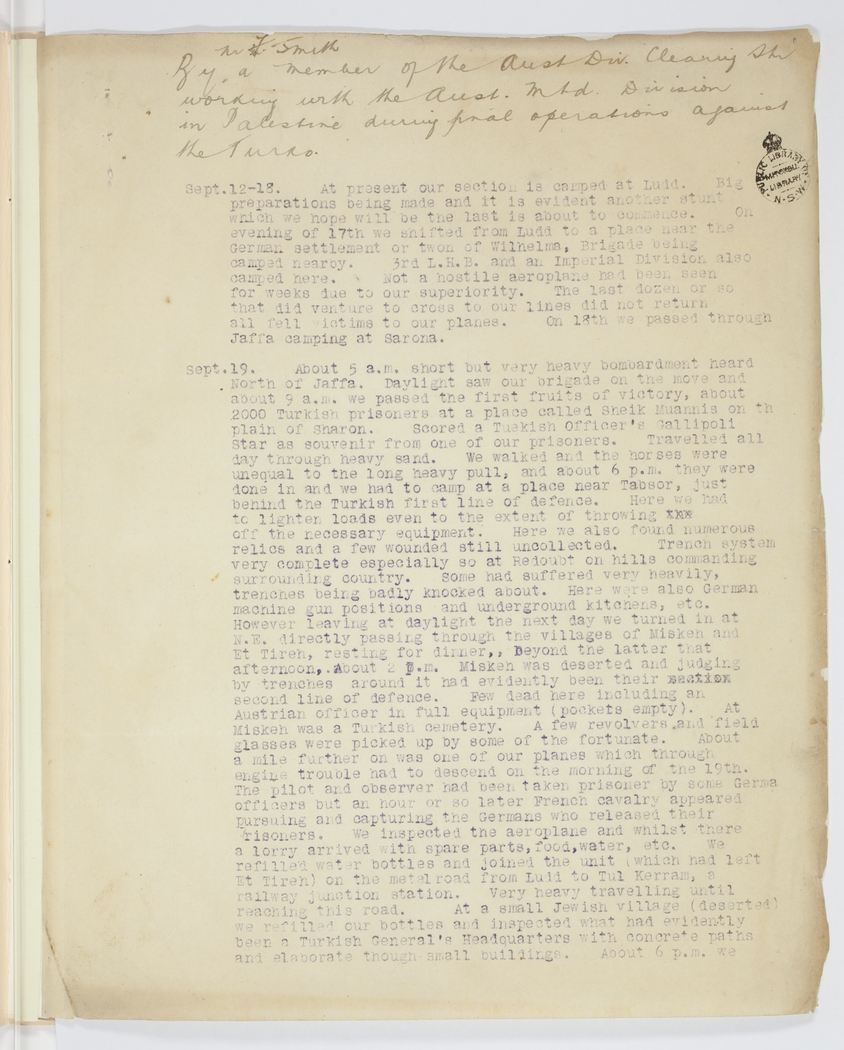 Mr F. Smith
By, a member of the Aust Div. Clearing Stn
working with the Aust. Mtd. Division
in Palestine during final operations against
the Turks.
PUBLIC LIBRARY OF
MITCHELL
LIBRARY
N.S.W.
Sept.12-18. At present our section is camped at Ludd. Big
preparations being made and it is evident another stunt
which we hope will be the last is about to commence. On
evening of 17th we shifted from Ludd to a place near the
German settlement or twon of Wilhelma, Brigade being
camped nearby. 3rd L.H.B. and an Imperial Division also
camped here. Not a hostile aeroplane had been seen
for weeks due to our superiority. The last dozen or so
that did venture to cross to our lines did not return
all fell victims to our planes. On 18th we passed through
Jaffa camping at Sarona.
Sept.19. About 5 a.m. short but very heavy bombardment heard
North of Jaffa. Daylight saw our brigade on the move and
about 9 a.m. we passed the first fruits of victory, about
2000 Turkish prisoners at a place called Sheik Muannis on th
plain of Sharon. Scored a Tuekish Officer's Gallipoli
Star as souvenir from one of our prisoners. Travelled all
day through heavy sand. We walked and the horses were
unequal to the long heavy pull, and about 6 p.m. they were
done in and we had to camp at a place near Tabsor, just
behind the Turkish first line of defence. Here we had
to lighten loads even to the extent of throwing xxx
off the necessary equipment. Here we also found numerous
relics and a few wounded still uncollected. Trench system
very complete especially so at Redoubt on hills commanding
surrounding country. Some had suffered very heavily,
trenches being badly knocked about. Here were also German
machine gun positions and underground kitchens, etc.
However leaving at daylight the next day we turned in at
N.E. directly passing through the villages of Miskeh and
Et Tireh, resting for dinner,, Beyond the latter that
afternoon,.About 2 p.m. Miskeh was deserted and judging
by trenches around it had evidently been their
second line of defence. Few dead here including an
Austrian officer in full equipment (pockets empty). At
Miskeh was a Turkish cemetery. A few revolvers and field
glasses were picked up by some of the fortunate. About
a mile further on was one of our planes which through
engine trouble had to descend on the morning of the 19th.
The pilot and observer had been taken prisoner by some Germa
officers but an hour or so later French cavalry appeared
pursuing and capturing the Germans who released their
risoners. We inspected the aeroplane and whilst there
a lorry arrived with spare parts,food,water, etc. We
refilled water bottles and joined the unit (which had left
Et Tireh) on the metelroad from Ludd to Tul Kerram, a
railway junction station. Very heavy travelling until
reaching this road. At a small Jewish village (deserted)
we refilled our bottles and inspected what had evidently
been a Turkish General's Headquarters with concrete paths
and elaborate though small buildings. About 6 p.m. we